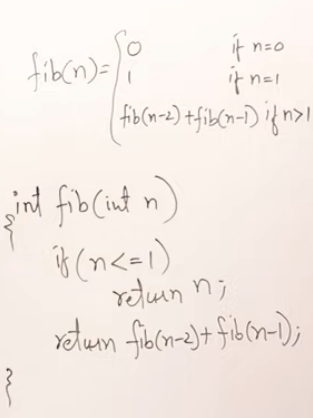 fib(n)= { 0 if n=0
1 if n=1
fib(n-2)+fib(n-1) if n>1
int fib(int n)
{
if(n<=1)
return n;
return fib(n-2)+fib(n-1);
}